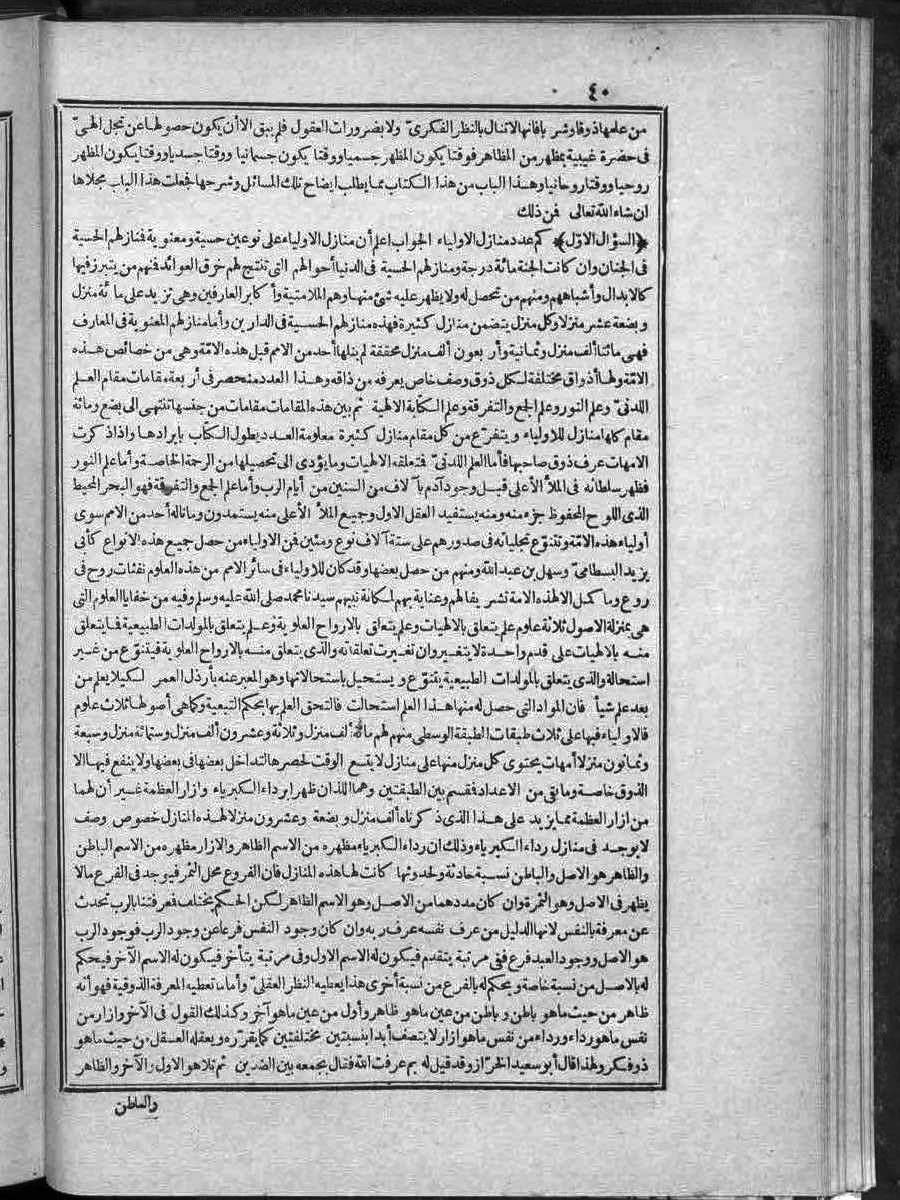 ٤٠
من علمها ذوقا وشربا فانها لاتنال بالنظر الفكرى ولا بضرورات العقول فلم يبق الا أن يكون حصولها عن تجل الهى
فى حضرة غيبية بمظهر من المظاهر فوقتا يكون المظهر جسميا ووقتا يكون جسمانيا ووقتا جسديا ووقتا يكون المظهر
روحيا ووقتا روحانيا وهذا الباب من هذا الكتاب مما يطلب ايضاح تلك المسائل وشرحها فجعلت هذا الباب مجلاها
ان شاء الله تعالى فمن ذلك
﴿السؤال الاول﴾ كم عدد منازل الاولياء الجواب اعلم أن منازل الاولياء على نوعين حسية ومعنوية فمنازلهم الحسية
فى الجنان وان كانت الجنة مائة درجة ومنازلهم الحسية فى الدنيا أحوالهم التى تنتج لهم خرق العوائد فمنهم من يتبرز فيها
كالابدال وأشباههم ومنهم من تحصل له ولا يظهر عليه شئ منها وهم الملامتية وأكابر العارفين وهى تزيد على مائة منزل
وبضعة عشر منزلا وكل منزل يتضمن منازل كثيرة فهذه منازلهم الحسية فى الدارين وأما منازلهم المعنوية فى المعارف
فهى مائتا ألف منزل وثمانية وأربعون ألف منزل محققة لم ينلها أحد من الامم قبل هذه الامّة وهى من خصائص هذه
الامّة ولها أذواق مختلفة لكل ذوق وصف خاص يعرفه من ذاقه وهذا العدد منحصر فى أربعة مقامات مقام العلم
اللدنى وعلم النور وعلم الجمع والتفرقة وعلم الكتابة الالهية ثم بين هذه المقامات مقامات من جنسها تنتهى الى بضع ومائة
مقام كلها منازل للاولياء ويتفرّع من كل مقام منازل كثيرة معلومة العدد يطول الكتاب بايرادها واذا ذكرت
الامهات عرف ذوق صاحبها فأما العلم اللدنى فمتعلقه الالهيات وما يؤدى الى تحصيلها من الرحمة الخاصة وأما علم النور
فظهر سلطانه فى الملأ الأعلى قبل وجود آدم بآلاف من السنين من أيام الرب وأما علم الجمع والتفرقة فهو البحر المحيط
الذى اللوح المحفوظ جزء منه ومنه يستفيد العقل الاول وجميع الملأ الأعلى منه يستمدون وما ناله أحد من الامم سوى
أولياء هذه الامّة وتتنوّع تجلياته فى صدورهم على ستة آلاف نوع ومئين فمن الاولياء من حصل جميع هذه الانواع كأبى
يزيد البسطامى وسهل بن عبد الله ومنهم من حصل بعضها وقد كان للاولياء فى سائر الامم من هذه العلوم نفثات روح فى
روع وما كمل الا لهذه الامة تشريفا لهم وعناية بهم لمكانة نبيهم سيدنا محمد صلى الله عليه وسلم وفيه من خفايا العلوم التى
هى بمنزلة الاصول ثلاثة علوم علم يتعلق بالالهيات وعلم يتعلق بالارواح العلوية وعلم يتعلق بالمولدات الطبيعية فما يتعلق
منه بالالهيات على قدم واحدة لا يتغير وان تغيرت تعلقاته والذى يتعلق منه بالارواح العلوية فيتنوّع من غير
استحالة والذى يتعلق بالمولدات الطبيعية يتنوّع ويستحيل باستحالاتها وهو المعبر عنه بأرذل العمر لكيلا يعلم من
بعد علم شيأ فان المواد التى حصل له منها هذا العلم استحالت فالتحق العلم بها بحكم التبعية وكما هى أصولها ثلاث علوم
فالاولياء فيها على ثلاث طبقات الطبقة الوسطى منهم لهم مائة ألف منزل وثلاثة وعشرون ألف منزل وستمائة منزل وسبعة
وثمانون منزلا أمهات يحتوى كل منزل منها على منازل لا يتسع الوقت لحصرها لتداخل بعضها فى بعضها ولا ينفع فيها الا
الذوق خاصة وما بقى من الاعداد فمقسم بين الطبقتين وهما اللذان ظهرا برداء الكبرياء وازار العظمة غير أن لهما
من ازار العظمة مما يزيد على هذا الذى ذكرناه ألف منزل وبضعة وعشرون منزلا لهذه المنازل خصوص وصف
لا يوجد فى منازل رداء الكبرياء وذلك ان رداء الكبرياء مظهره من الاسم الظاهر والازار مظهره من الاسم الباطن
والظاهر هو الاصل والباطن نسبة حادثة ولحدوثها كانت لها هذه المنازل فان الفروع محل الثمر فيوجد فى الفرع مالا
يظهر فى الاصل وهو الثمرة وان كان مددهما من الاصل وهو الاسم الظاهر لكن الحكم يختلف فمعرفتنا بالرب تحدث
عن معرفة بالنفس لانها الدليل من عرف نفسه عرف ربه وان كان وجود النفس فرعا عن وجود الرب فوجود الرب
هو الاصل ووجود العبد فرع ففى مرتبة يتقدم فيكون له الاسم الاول وفى مرتبة يتأخر فيكون له الاسم الآخر فيحكم
له بالاصل من نسبة خاصة ويحكم له بالفرع من نسبة أخرى هذا يعطيه النظر العقلى وأما ما تعطيه المعرفة الذوقية فهو أنه
ظاهر من حيث ما هو باطن وباطن من عين ما هو ظاهر وأول من عين ما هو آخر وكذلك القول فى الآخر وازار من
نفس ما هو رداء ورداء من نفس ما هو ازار لا يتصف أبدا بنسبتين مختلفتين كما يقرّره ويعقله العقل من حيث ما هو
ذو فكر ولهذا قال أبو سعيد الخرّاز وقد قيل له بم عرفت الله فقال بجمعه بين الضدين ثم تلا هو الاول والآخر والظاهر
والباطن